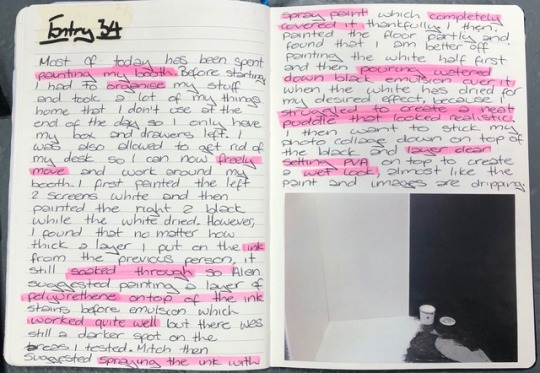 Entry 34
Most of today has been spent
painting my booth. Before starting
I had to organise my stuff
and took a lot of my things
home that I don't use at the
end of the day so I only have
my box and drawers left. I
was also allowed to get rid of
my desk so I can now freely
move and work around my
booth. I first painted the left
2 screens white and then
painted the right 2 black
while the white dried. However,
I found that no matter how
thick a layer I put on the ink
from the previous person, it
still soaked through so Alen
suggested painting a layer of
polyurethene ontop of the ink
stains before emulsion which
worked quite well but there was
still a darker spot on the
areas I tested. Mitch then
suggested spraying the ink with
spray paint which completely
covered it thankfully. I then
painted the floor partly and
found that I am better off
painting the white half first
and then pouring watered
down black emulsion over it
when the white has dried for
my desired effect, because I
struggled to create a neat
puddle that looked realistic.
I then want to stick my
photo collage down on top of
the black and layer clear
setting PVA on top to create
a wet look, almost like the
paint and images are dripping.